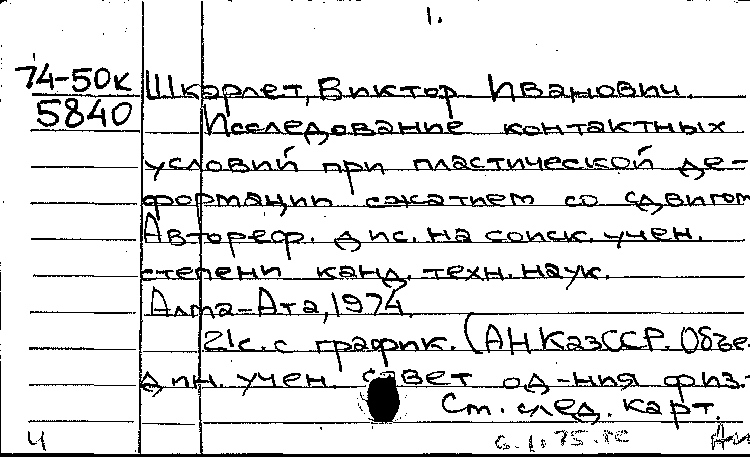 1.
74-50к Шкарлет, Виктор Иванович.
5840 Исследование контактных
условий при пластической де-
формации сжатием со сдвигом
Автореф. дис. на соиск. учен.
степени канд. техн. наук.
Алма-Ата, 1974.
21с. с график. (АН КазССР. Объе-
дин. учен. совет отд-ния физ.-
См. след. карт.
Ч 6.1.75